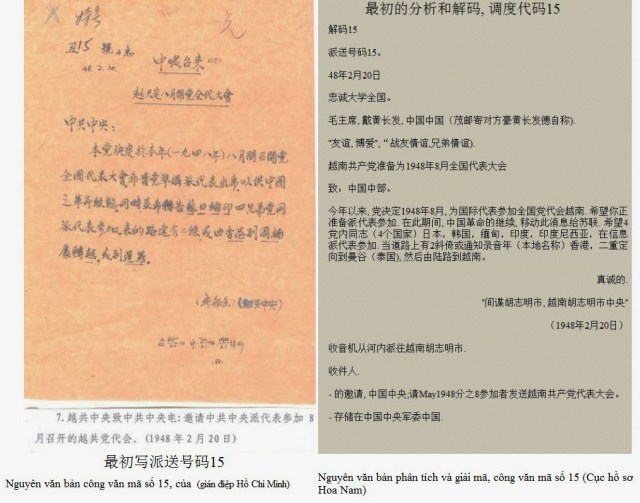 48.2.20.
越共定八月開黨全代大會
中共中央：
本黨決定於本年(一九四八年)八月開召開黨
全國代表大會希貴黨準備派代表出席以供中國
黨同
(越共中央)
7.越共中央致中共中央电:邀请中共中央派代表参加 8
月召开的越共党代会。(1948 年 2 月 20 日)
最初写派送号码15
Nguyên văn bản công văn mã số 15, của (gián điệp Hồ Chí Minh)
最初的分析和解码, 调度代码15
解码15
派送号码15。
48年2月20日
忠诚大学全国。
毛主席, 戴黄长发, 中国中国（茂邮寄对方豪黄长发德自称).
"友谊, 博爱", “战友情谊,兄弟情谊).
越南共产党准备为1948年8月全国代表大会
致：中国中部。
今年以来, 党决定1948年8月, 为国际代表参加全国党代会越南. 希望你正
准备派代表参加. 在此期间, 中国革命的继续, 移动此消息给苏联. 希望4
党内同志（4个国家）日本，韩国，缅甸，印度，印度尼西亚，在信息
派代表参加. 当道路上有2斜倚或通知录音年（本地名称）香港，二重定
向到曼谷（泰国), 然后由陆路到越南。
真诚的.
"间谍胡志明市, 越南胡志明市中央"
（1948年2月20日）
收音机从河内派往越南胡志明市.
收件人.
- 的邀请, 中国中央;请May1948分之8参加者发送越南共产党代表大会。
- 存储在中国中央军委中国.
Nguyên văn bản phân tích và giải mã, công văn mã số 15 (Cục hồ sơ
Hoa Nam)